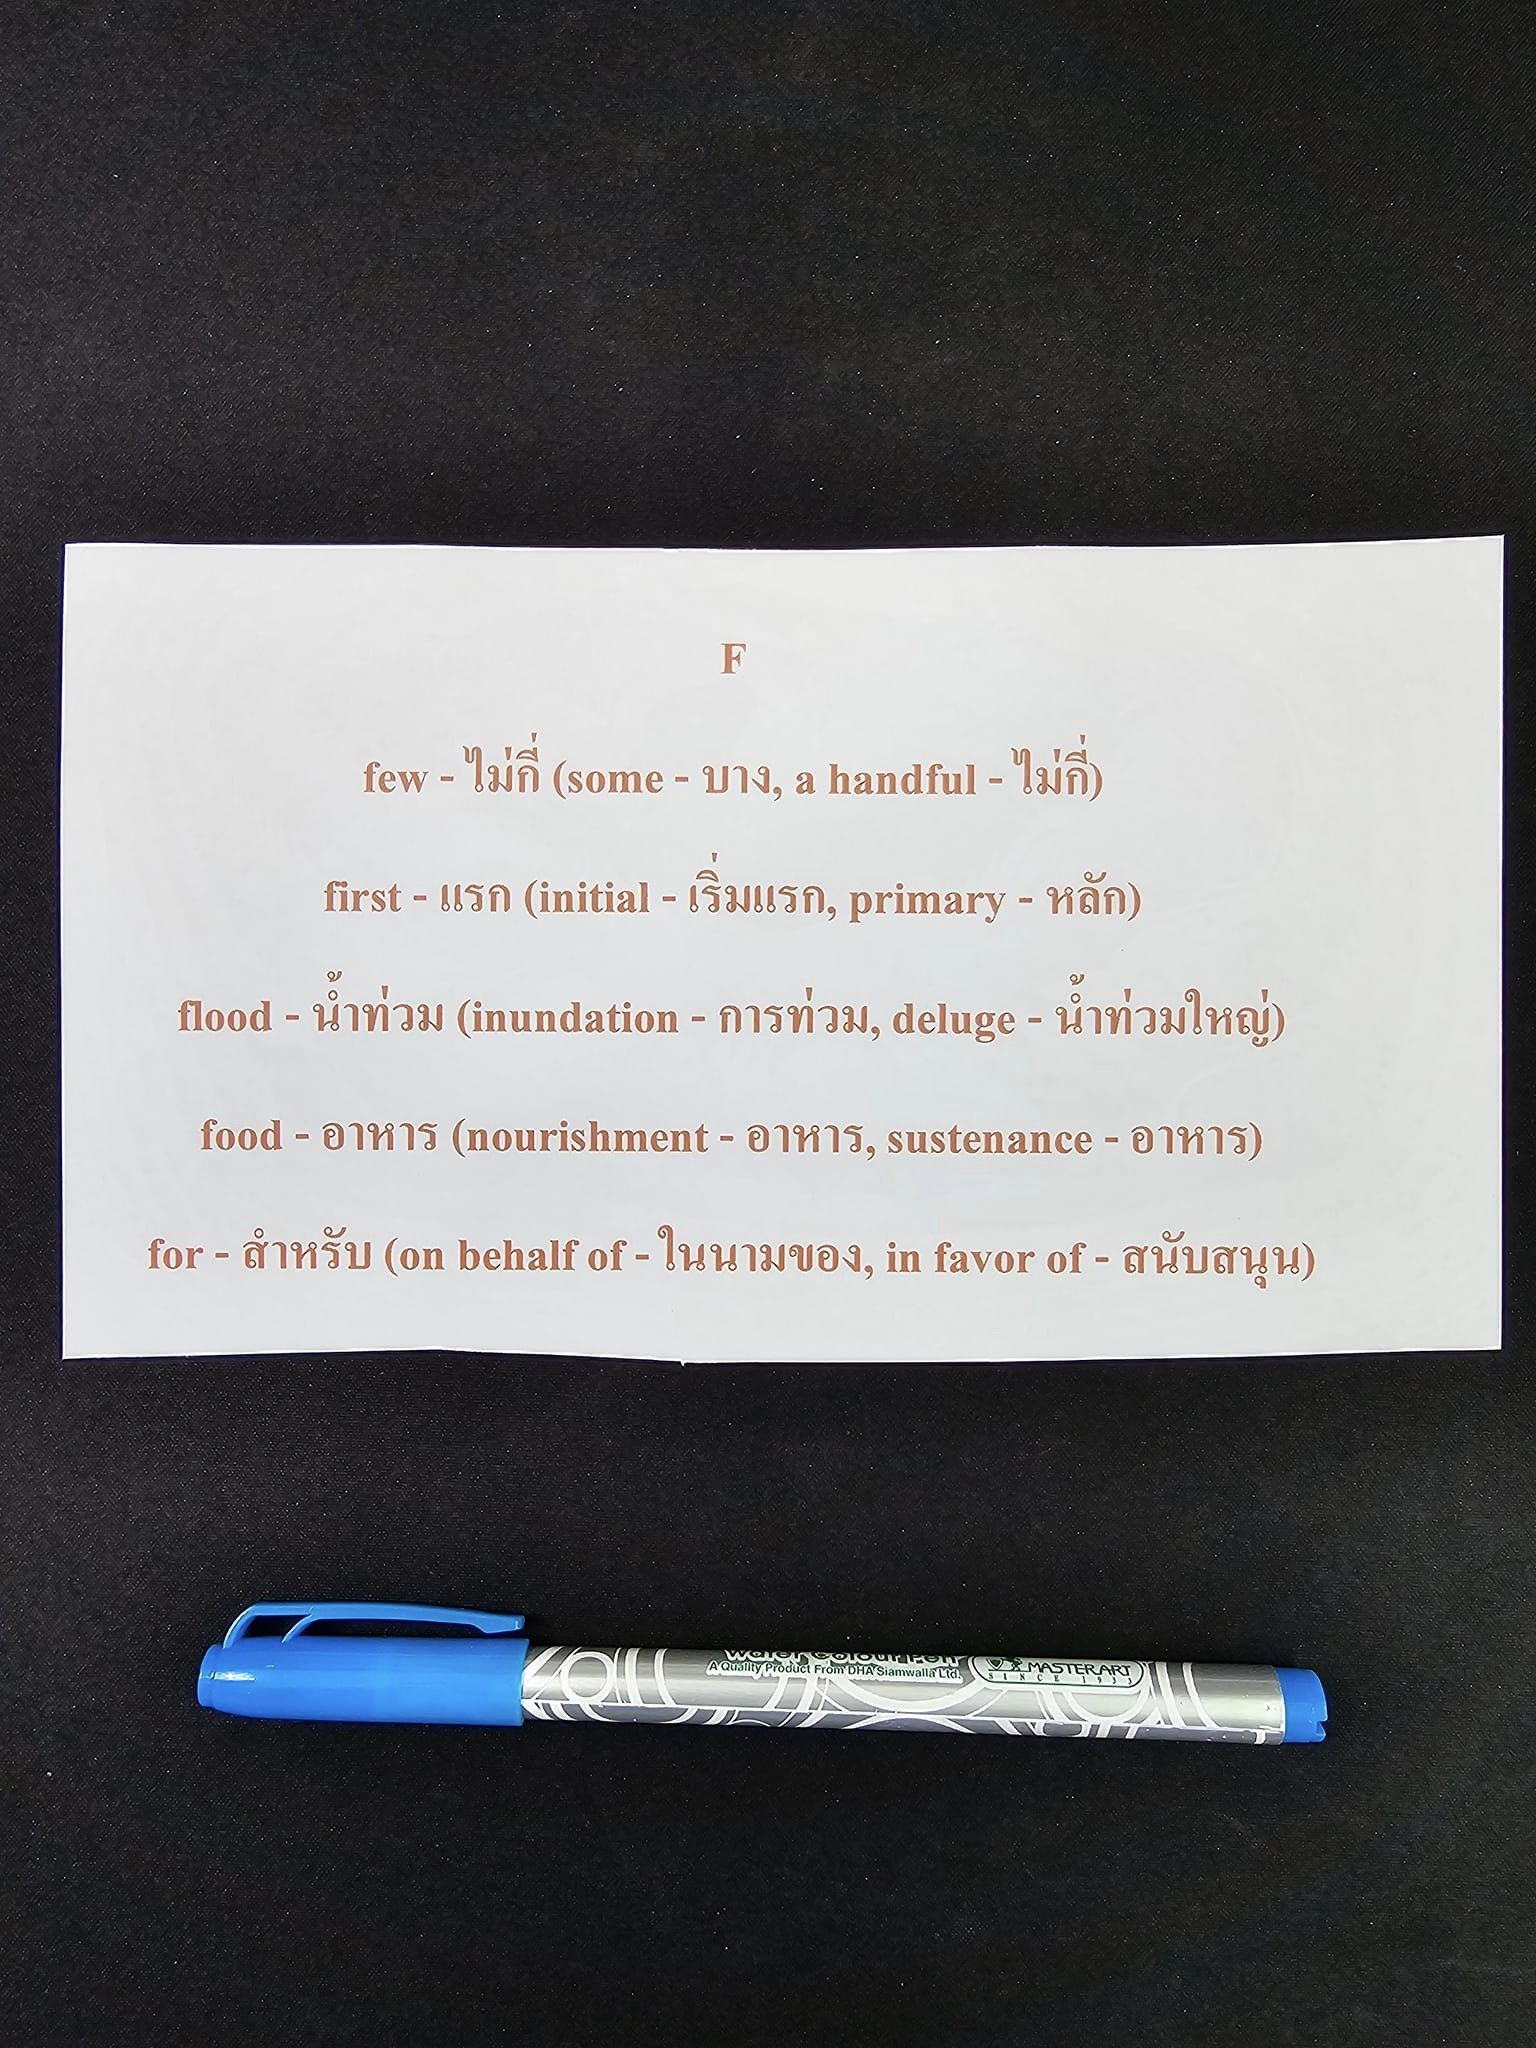 F
few - ไม่กี่ (some - บาง, a handful - ไม่กี่)
first - แรก (initial - เริ่มแรก, primary - หลัก)
flood - น้ำท่วม (inundation - การท่วม, deluge - น้ำท่วมใหญ่)
food - อาหาร (nourishment - อาหาร, sustenance - อาหาร)
for - สำหรับ (on behalf of - ในนามของ, in favor of - สนับสนุน)
Water Colour Pen
A Quality Product From DHA Siamwalla Ltd.
MASTERART
SINCE 1933